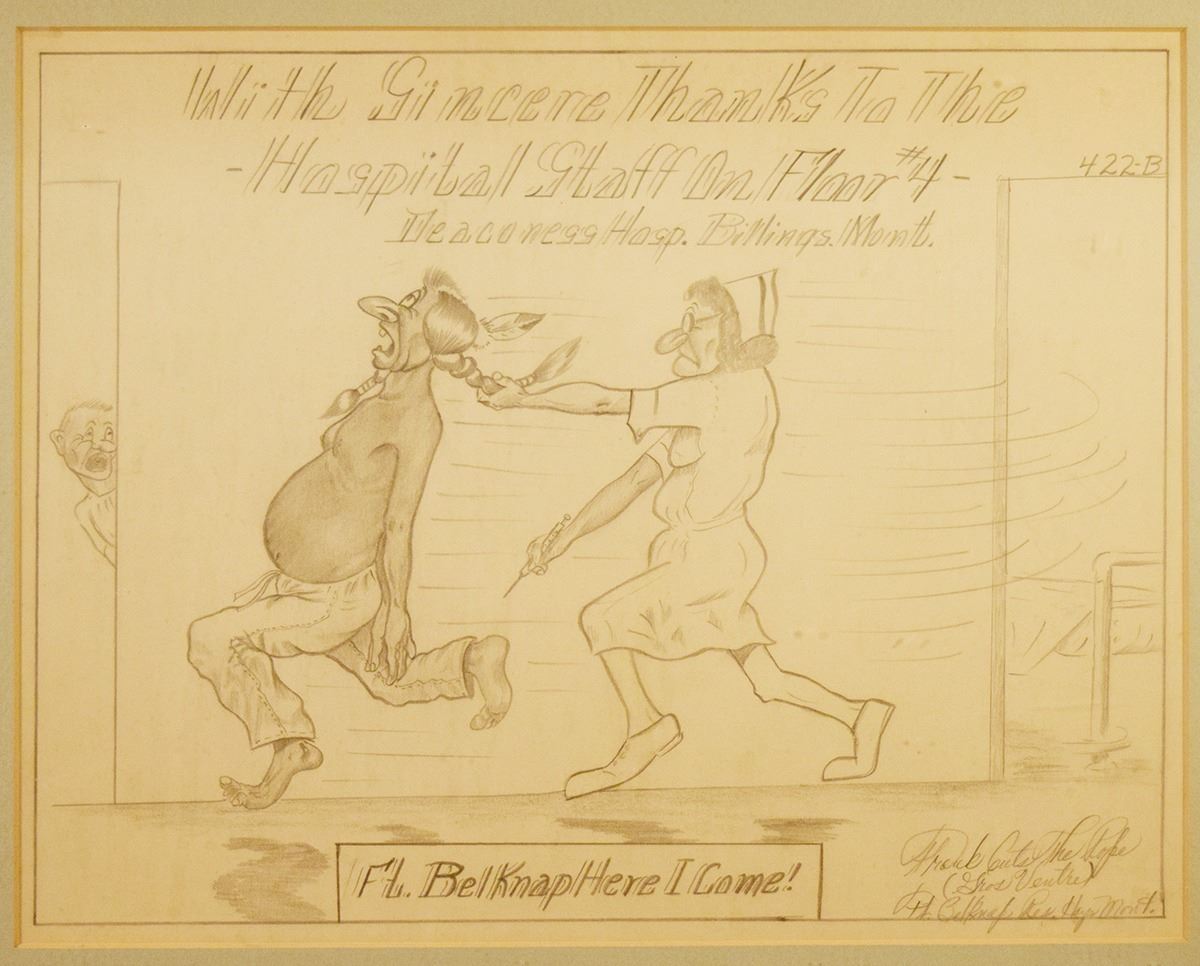 With Sincere Thanks To The
-Hospital Staff On Floor #4-
Deaconess Hosp. Billings. Mont.
422-B
Ft. Belknap Here I Come!
Frank Cuts The Rope
(Gros Ventre)
Ft. Belknap Res. Hays Mont.